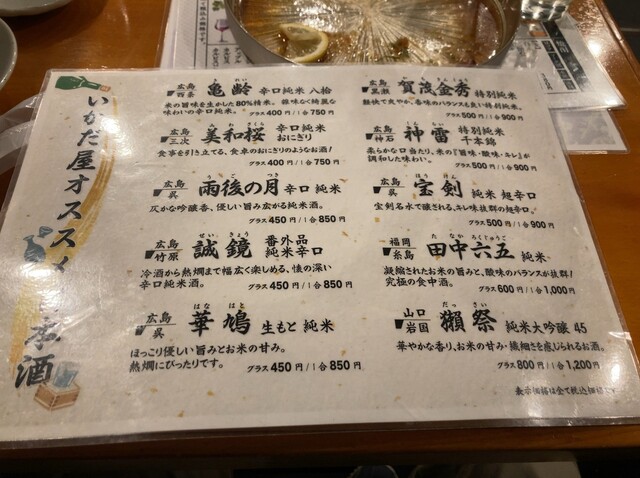 いかだ屋オススメ
本酒
広島
西条
きれい
亀齢 辛口純米 八拾
米の旨味を生かした80%精米。雑味なく綺麗な
味わいの辛口純米。
グラス400円/1合750円
広島
三次
みわさくら
美和桜 辛口純米
おにぎり
食事を引き立てる、食卓のおにぎりのようなお酒!
グラス400円/1合750円
広島
呉
うごのつき
雨後の月 辛口 純米
仄かな吟醸香、優しい旨み広がる純米酒。
グラス450円/1合850円
広島
竹原
せいきょう
誠鏡 番外品
純米辛口
冷酒から熱燗まで幅広く楽しめる、懐の深い
辛口純米酒。
グラス450円/1合850円
広島
呉
はなはと
華鳩 生もと 純米
ほっこり優しい旨みとお米の甘み。
熱燗にぴったりです。
グラス450円/1合850円
広島
黒瀬
賀茂金秀 特別純米
軽快で爽やか。香味のバランスも良い特別純米。
グラス500円/1合900円
広島
神石
神雷 特別純米
千本錦
柔らかな口当たり、米の『旨味・酸味・キレ』が
調和した味わい。
グラス500円/1合900円
広島
呉
ほうけん
宝剣 純米 超辛口
宝剣名水で醸される、キレ味抜群の超辛口。
グラス500円/1合900円
福岡
糸島
たなかろくじゅうご
田中六五 純米
凝縮されたお米の旨みと、酸味のバランスが抜群!
究極の食中酒。
グラス600円/1合1,000円
山口
岩国
だっさい
獺祭 純米大吟醸 45
華やかな香り、お米の甘み・繊細さを感じられるお酒。
グラス800円/1合1,200円
表示価格は全て税込価格です